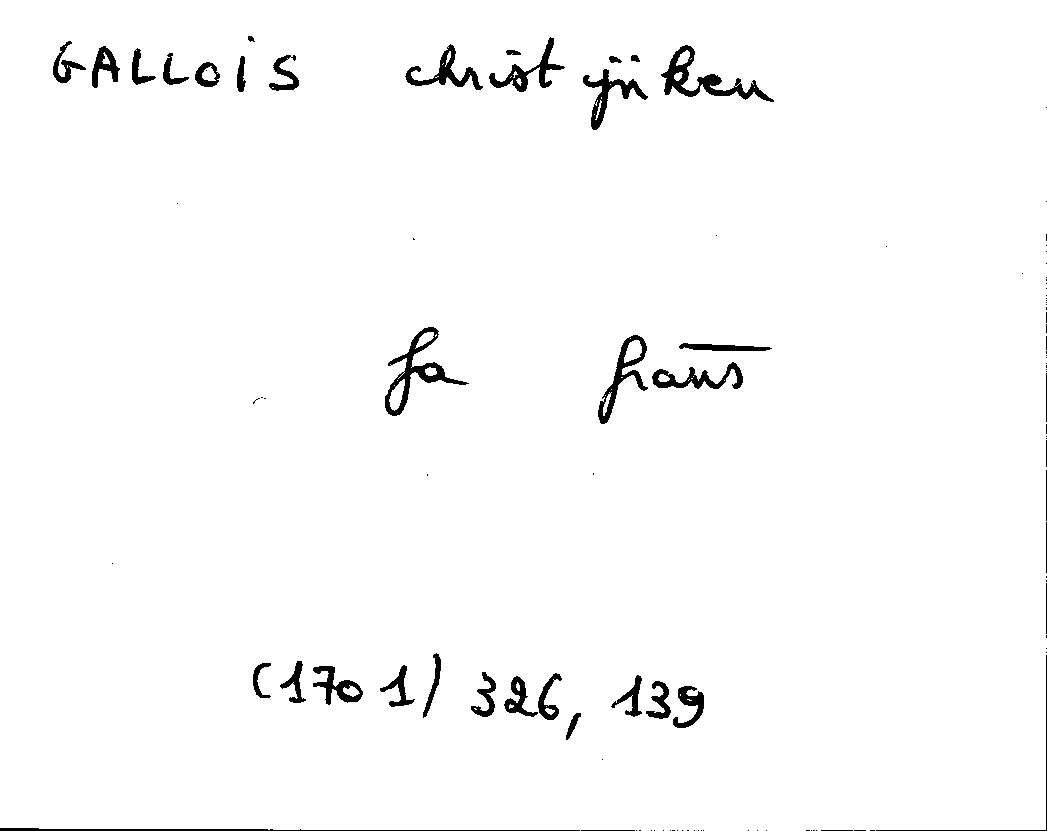 GALLOIS christ jiiken
fa frans
(1701) 326, 139